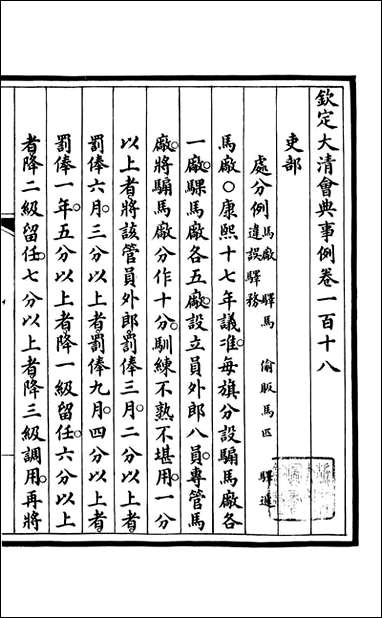 欽定大清會典事例卷一百十八
吏部
處分例 馬廠 驛馬 偷販馬匹 驛遞
違誤驛務
馬廠○康熙十七年議准每旗分設騸馬廠各
一廠騍馬廠各五廠設立員外郎八員專管馬
廠將騸馬廠分作十分馴練不熟不堪用一分
以上者將該管員外郎罰俸三月二分以上者
罰俸六月三分以上者罰俸九月四分以上者
罰俸一年五分以上者降一級留任六分以上
者降二級留任七分以上者降三級調用再將